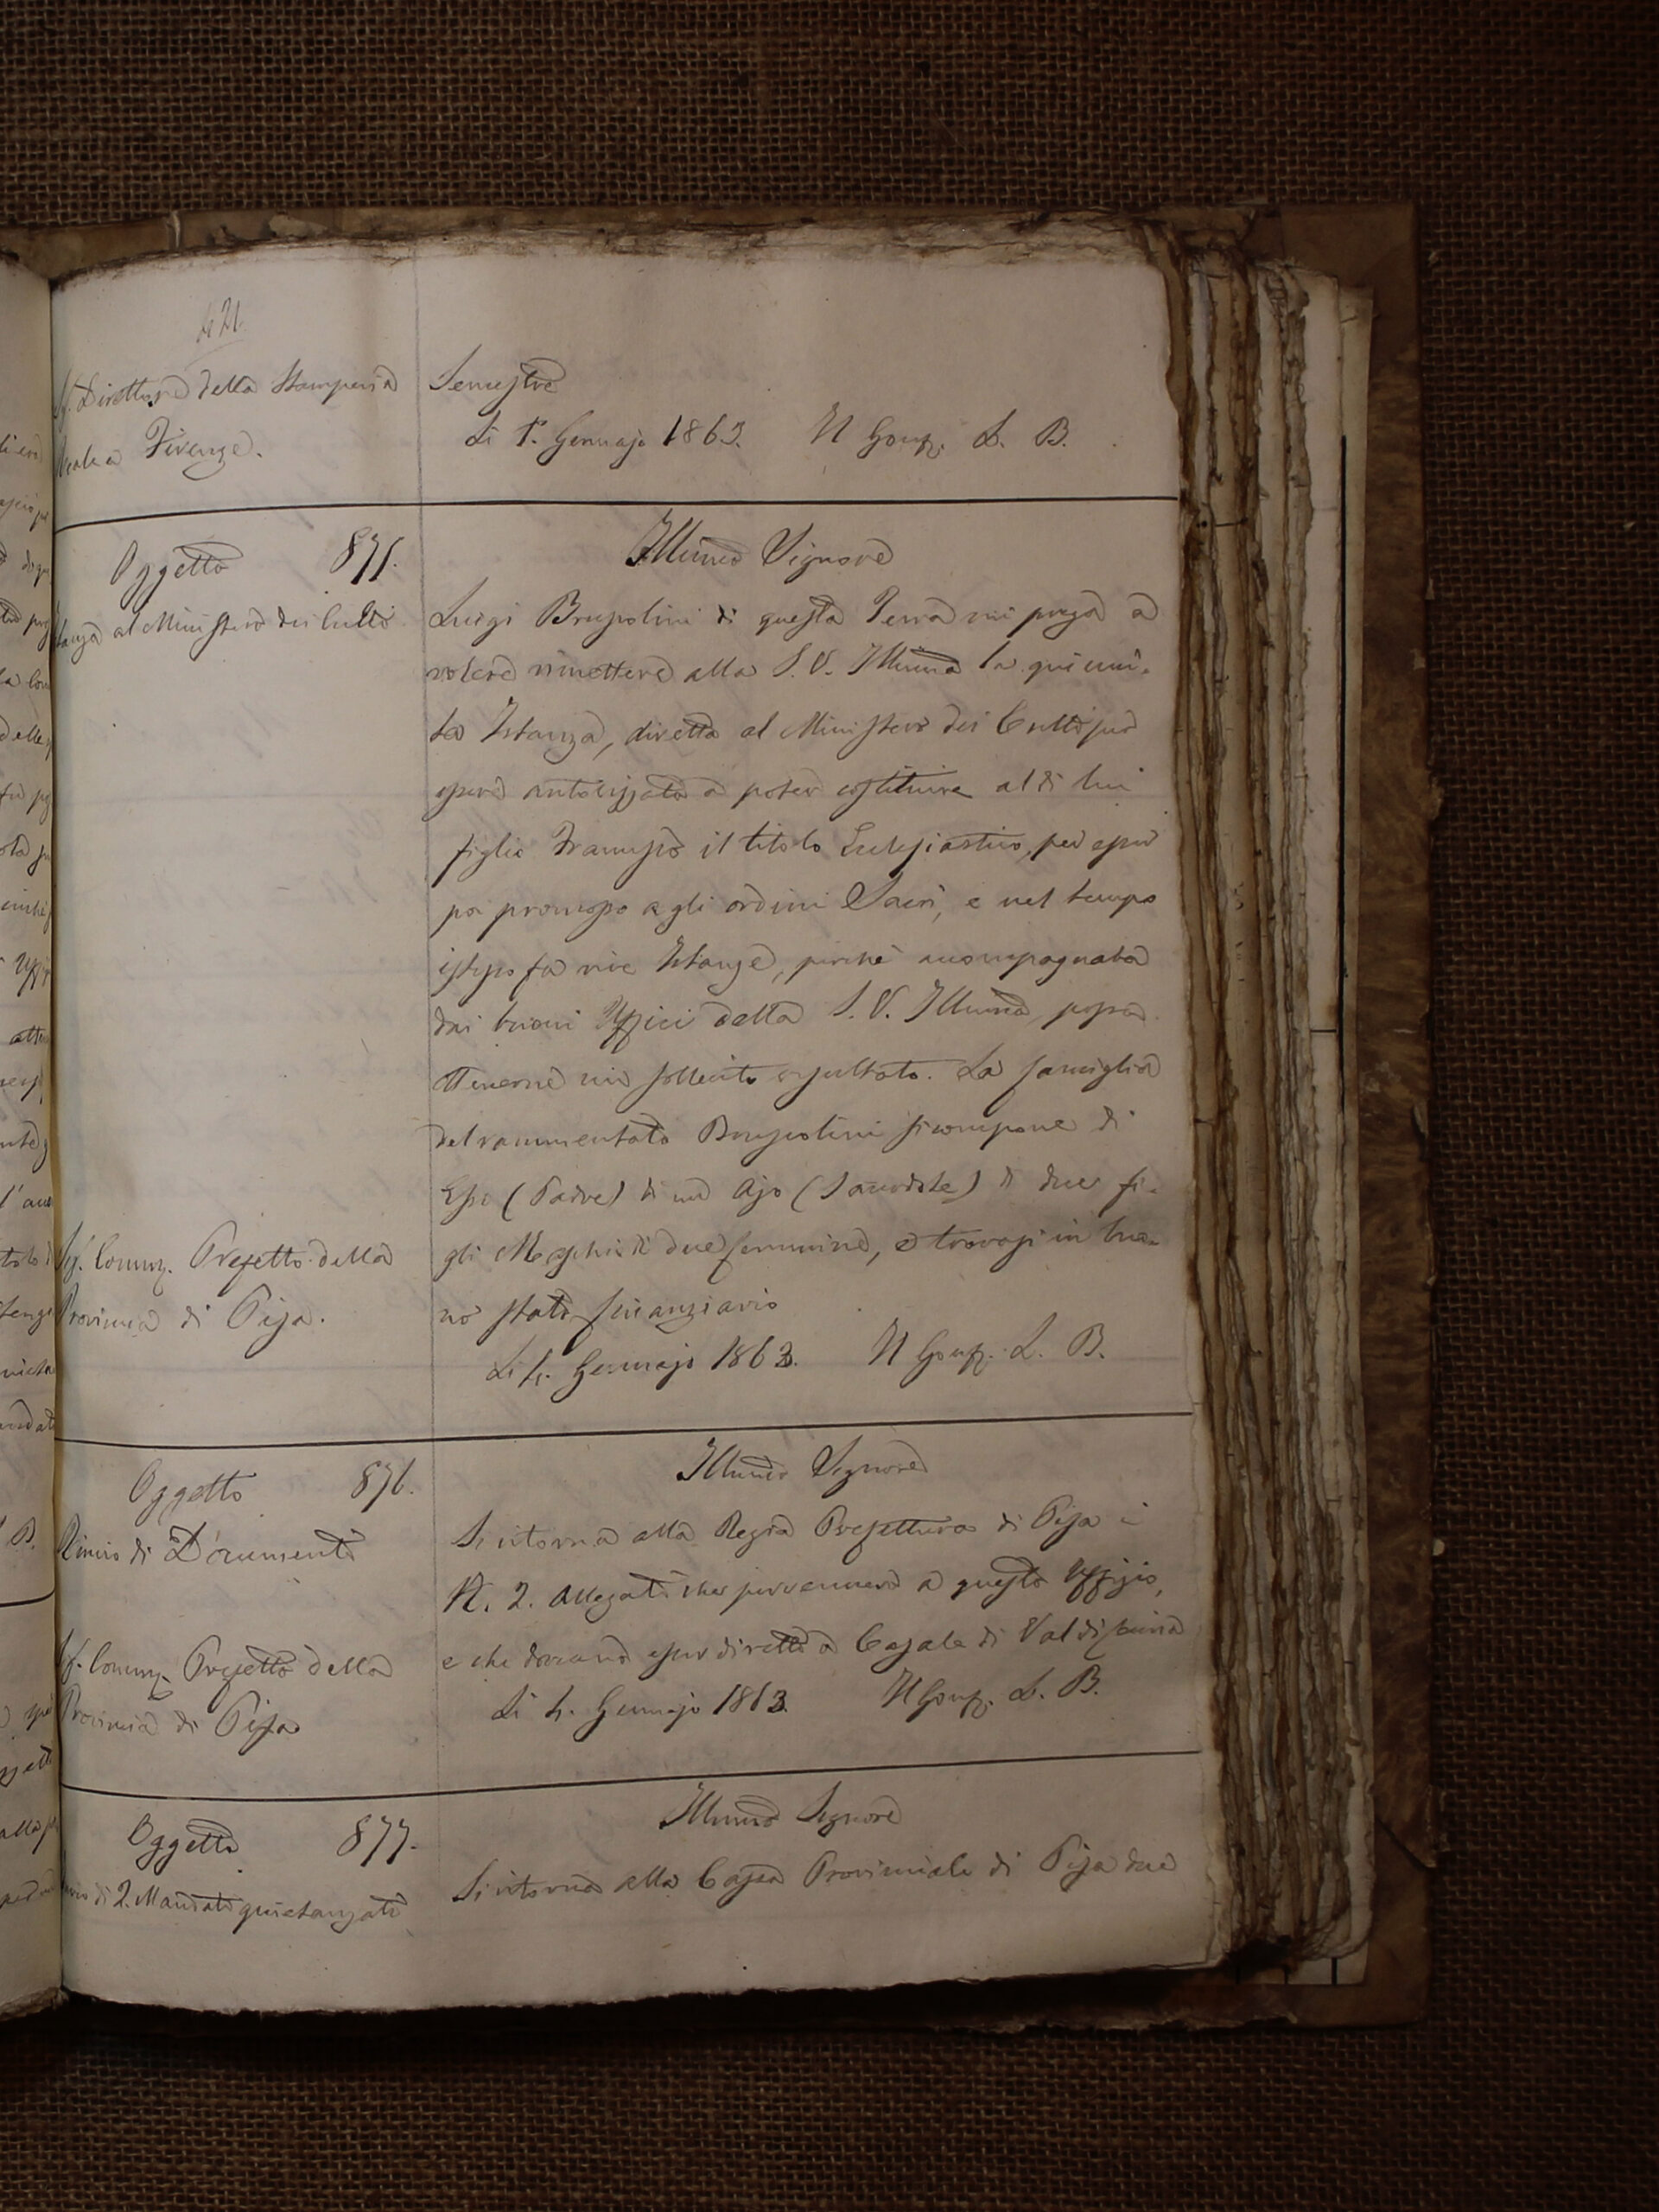 421.
Sig. Direttore della Stamperia
Reale a Firenze.
Semestre
Li 1º. Gennajo 1863. Il Gonf. L. B.
Oggetto 875.
al Ministero dei Culti
Illmo Signore
Luigi Brupolini di questa Terra mi prega a
volere rimettere alla S. V. Illma la qui uni-
ta Istanza, diretta al Ministero dei Culti per
essere autorizzato a poter costituire al di lui
figlio Francesco il titolo Ecclesiastico, per esser
poi promosso agli ordini Sacri, e nel tempo
istesso fa vive Istanze, perchè accompagnata
dai buoni Uffici della S. V. Illma, possa
ottenerne un sollecito resultato. La famiglia
del rammentato Brupolini si compone di
Esso (Padre) di un Ajo (Sacerdote) di due fi-
gli Maschi e di due femmine, e trovasi in buo-
no stato finanziario
Li 4. Gennajo 1863. Il Gonf. L. B.
Sig. Comm. Prefetto della
Provincia di Pisa.
Oggetto 876.
Rinvio di Documenti
Illmo Signore
Si ritorna alla Regia Prefettura di Pisa i
N. 2. allegati che pervennero a questo Uffizio,
e che dovevano esser diretti a Casale di Val di Cecina
Li 4. Gennajo 1863. Il Gonf. L. B.
Sig. Comm. Prefetto della
Provincia di Pisa
Oggetto 877.
di 2. Mandati quietanzati
Illmo Signore
Si ritorna alla Cassa Provinciale di Pisa due